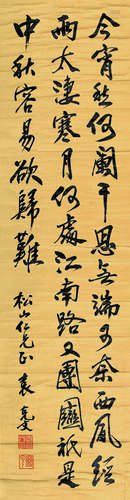 今宵愁倚闌干思無端可奈西風經
雨太淒寒月何處江南路又團圞祇是
中秋容易欲歸難
松山仁兄正 袁克文